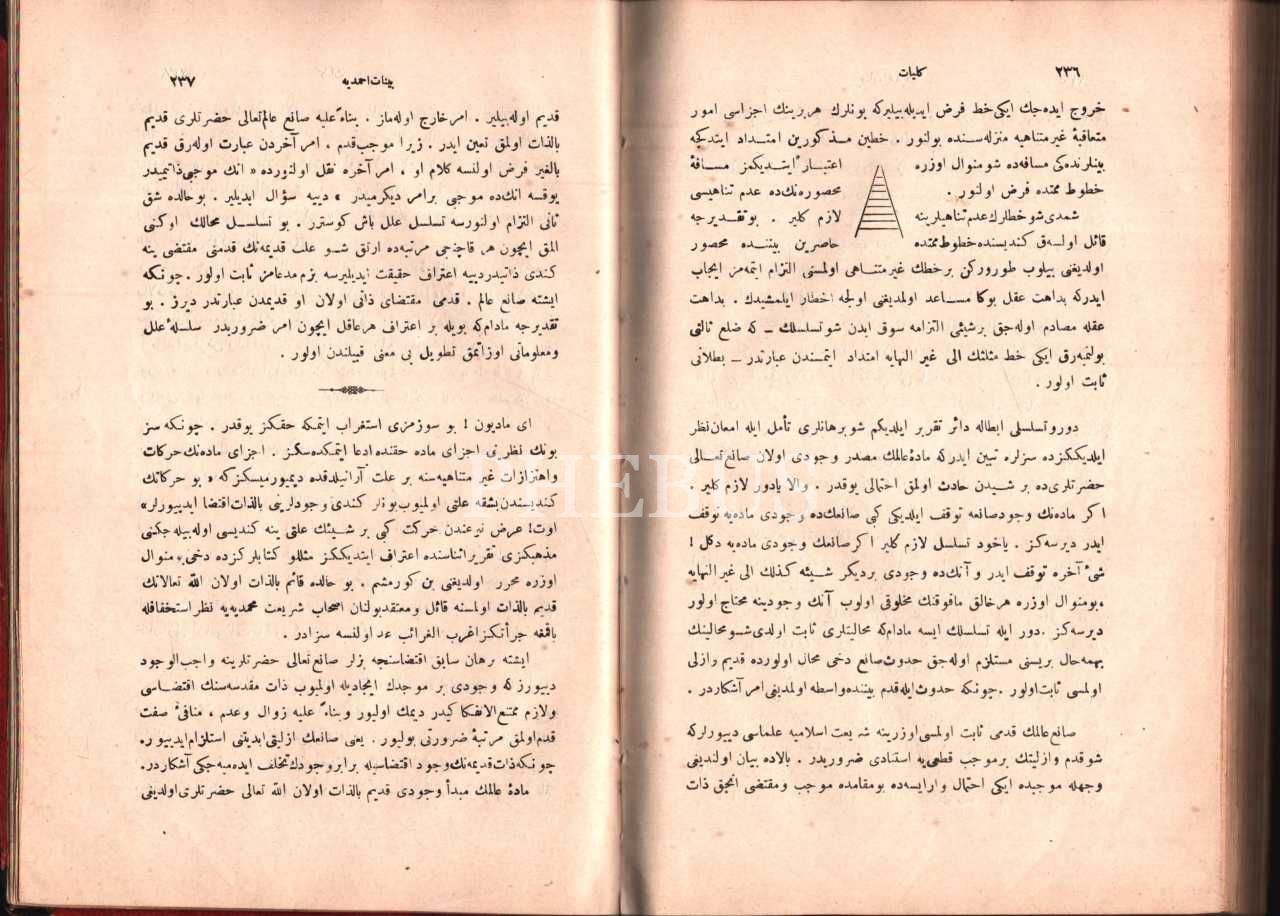 ٢٣٦
كليات
خروج ايده‌جك ايكی خط فرض ايديله‌بيلير كه بونلرك هربرينك اجزاسی امور
متعاقبهٔ غيرمتناهيه منزله‌سنده بولنور . خطين مذكورين امتداد ايتدكجه
بينلرنده‌كی مسافه‌ده شومنوال اوزره
اعتبار ايتديكمز مسافهٔ
خطوط ممتده فرض اولنور .
محصوره‌نك‌ده عدم تناهيسی
شمدی شو خطلرك عدم تناهيلرينه
لازم كلير . بوتقديرجه
قائل اولسه‌ق كنديسنده خطوط ممتده
حاصرين بيننده محصور
اولديغنی بيلوب طوروركن برخطك غيرمتناهی اولمسنی التزام ايتمه‌مز ايجاب
ايدركه بداهت عقل بوكا مساعد اولمديغنی اولجه اخطار ايلمشيدك . بداهت
عقله مصادم اوله‌جق برشيئی التزامه سوق ايدن شوتسلسلك ــ كه ضلع ثالثی
بولنميه‌رق ايكی خط مثلثك الی غير النهايه امتداد ايتمسندن عبارتدر ــ بطلانی
ثابت اولور .
دور وتسلسلی ابطاله دائر تقرير ايلديكم شو برهانلری تأمل ايله امعان نظر
ايلديككزده سزلره تبين ايدركه مادهٔ عالمك مصدر وجودی اولان صانع تعالی
حضرتلری‌ده بر شيدن حادث اولمق احتمالی يوقدر . والا يا دور لازم كلير .
اكر ماده‌نك وجود صانعه توقف ايلديكی كبی صانعك‌ده وجودی ماده‌يه توقف
ايدر ديرسه‌كز . ياخود تسلسل لازم كلير اكر صانعك وجودی ماده‌يه دكل !
شیٔ آخره توقف ايدر و آنك‌ده وجودی برديكر شيئه كذلك الی غيرالنهايه
،بومنوال اوزره هرخالق مافوقنك مخلوقی اولوب آنك وجودينه محتاج اولور
ديرسه‌كز . دور ايله تسلسلك ايسه مادام‌كه محاليتلری ثابت اولدی شو محالينك
بهمه‌حال بريسنی مستلزم اوله‌جق حدوث صانع دخی محال اولورده قديم و ازلی
اولمسی ثابت اولور . چونكه حدوث ايله قدم بيننده واسطه اولمديغی امر آشكاردر .
صانع عالمك قدمی ثابت اولمسی اوزرينه شريعت اسلاميه علماسی دييورلركه
شو قدم وازليتك برموجب قطعی‌يه استنادی ضروريدر . بالاده بيان اولنديغی
وجهله موجبده ايكی احتمال وارايسه‌ده بومقامده موجب ومقتضی انجق ذات
بينات احمديه
٢٣٧
قديم اوله‌بيلير . امرخارج اوله‌ماز . بناءً عليه صانع عالم تعالی حضرتلری قديم
بالذات اولمق تعين ايدر . زيرا موجب قدم . امر آخردن عبارت اوله‌رق قديم
بالغير فرض اولنسه كلام او ، امر آخره نقل اولنورده « انك موجبی ذاتيميدر
يوقسه انك‌ده موجبی برامر ديكرميدر » دييه سؤال ايديلير . بو حالده شق
ثانی التزام اولنورسه تسلسل علل باش كوسترر . بو تسلسل محالك اوكنی
المق ايچون هر قاچنجی مرتبه‌ده ارتق شو علت قديمه‌نك قدمنی مقتضی ينه
كندی ذاتيدر دييه اعتراف حقيقت ايديليرسه بزم مدعامز ثابت اولور . چونكه
ايشته صانع عالم . قدمی مقتضای ذاتی اولان او قديمدن عبارتدر ديرز . بو
تقديرجه مادام‌كه بويله بر اعتراف هرعاقل ايچون امر ضروريدر سلسلهٔ علل
ومعلولاتی اوزاتمق تطويل بی معنی قبيلندن اولور .
ای ماديون ! بو سوزمزی استغراب ايتمكه حقكز يوقدر . چونكه سز
بونك نظيرنی اجزای ماده حقنده ادعا ايتمكده‌سكز . اجزای ماده‌نك حركات
واهتزازات غير متناهيه‌سنه بر علت آرانيلدقده ديميورميسكزكه « بو حركاتك
كنديسندن بشقه علتی اولميوب بونلر كندی وجودلرينی بالذات اقتضا ايدييورلر»
اوت! عرض نوعندن حركت كبی بر شيئك علتی ينه كنديسی اوله‌بيله‌جكنی
مذهبكزی تقرير اثناسنده اعتراف ايتديككز مثللو كتابلركزده دخی بو منوال
اوزره محرر اولديغنی بن كورمشم . بو حالده قائم بالذات اولان اللّه تعالانك
قديم بالذات اولمسنه قائل ومعتقد بولنان اصحاب شريعت محمديه‌يه نظر استخفافله
باقمغه جرأتكز اغرب الغرائب عد اولنسه سزادر .
ايشته برهان سابق اقتضاسنجه بزلر صانع تعالی حضرتلرينه واجب الوجود
دييورز كه وجودی بر موجدك ايجاديله اولميوب ذات مقدسه‌سنك اقتضاسی
ولازم ممتنع الانفكاكيدر ديمك اولييور وبناءً عليه زوال وعدم ، منافیٔ صفت
قدم اولمق مرتبهٔ ضرورتی بولييور . يعنی صانعك ازليتی ابديتنی استلزام ايدييور.
چونكه ذات قديمه‌نك وجود اقتضاسيله برابر وجودك تخلف ايده‌ميه‌جكی آشكاردر.
مادهٔ عالمك مبدأ وجودی قديم بالذات اولان اللّه تعالی حضرتلری اولديغنی
PHEBUS